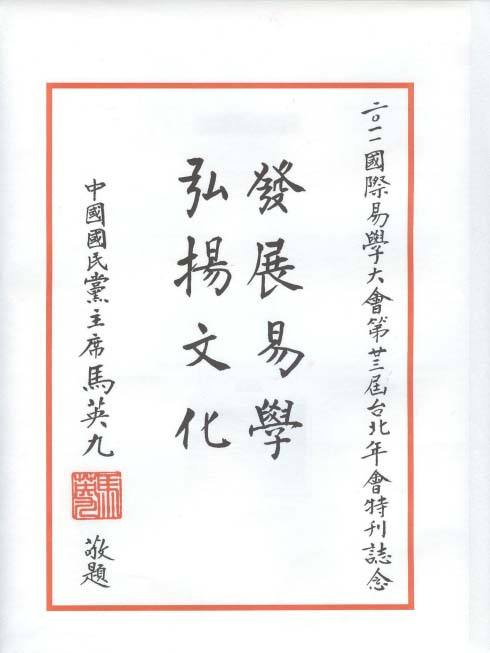 二〇一一國際易學大會第廿三屆台北年會特刊誌念
發展易學
弘揚文化
中國國民黨主席馬英九
馬英九
敬題